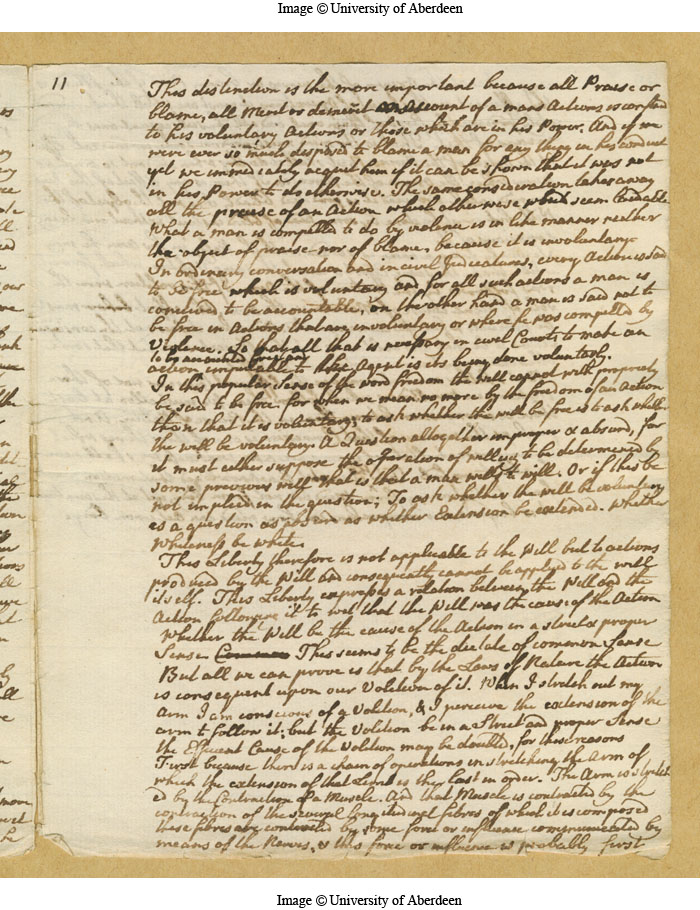 Image © University of Aberdeen
11
This distinction is the more important because all Praise or
blame, all Merit or demerit on Account of a mans Actions is confined
to his voluntary Actions or those which are in his Power. And if we
were ever so much disposed to blame a man for any thing in his conduct
yet we immediately acquit him if it can be shown that it was not
in his Power to do otherwise. The same consideration takes away
all the praise of an Action which otherwise would seem laudable
What a man is compelled to do by violence is in like manner neither
the object of praise nor of blame, because it is involuntary
In ordinary conversation and in civil Judicatures, every Action is said
to be free which is voluntary and for all such actions a man is
conceived to be accountable, on the other hand a man is said not to
be free in Actions that are involuntary or where he was compelled by
Violence. So that all that is necessary in civil Courts to make an
to be accounted free and
action imputable to the Agent is its being done voluntarly.
In this popular Sense of the word freedom the will cannot with propriety
be said to be free. for when we mean no more by the freedom of an Action
than that it is voluntary; to ask whether the will be free is to ask whether
the will be voluntary. A Question altogether improper & absurd, for
it must either suppose the operation of willing to be determined by
some previous will that is that a man wills to will. Or if this be
not implied in the question; To ask whether the will be voluntary
is a question as absurd as whether Extension be extended. Whether
Whiteness be white.
This Liberty therefore is not applicable to the Will but to actions
produced by the Will and consequently cannot be applyed to the will
itself. This Liberty expresses a relation between the Will and the
Action following it to wit that the Will was the cause of the Action
Whether the Will be the cause of the Action in a strict & proper
Sense This seems to be the dictate of common Sense
But all we can prove is that by the Laws of Nature the Action
is consequent upon our Volition of it. When I stretch out my
arm I am conscious of a Volition, & I perceive the extension of the
arm to follow it; but the Volition be in a Strict and proper Sense
the Efficient Cause of the Volition may be doubted, for these reasons
First because there is a chain of operations in stretching the Arm of
which the extension of that Limb is the last in order. The Arm is stretch
ed by the Contraction of a Muscle. And that Muscle is contracted by the
contraction of the several longitudinal fibres of which it is composed
these fibres are contracted by some force or influence communicated by
means of the Nerves, & this force or influence is probably first
Image © University of Aberdeen